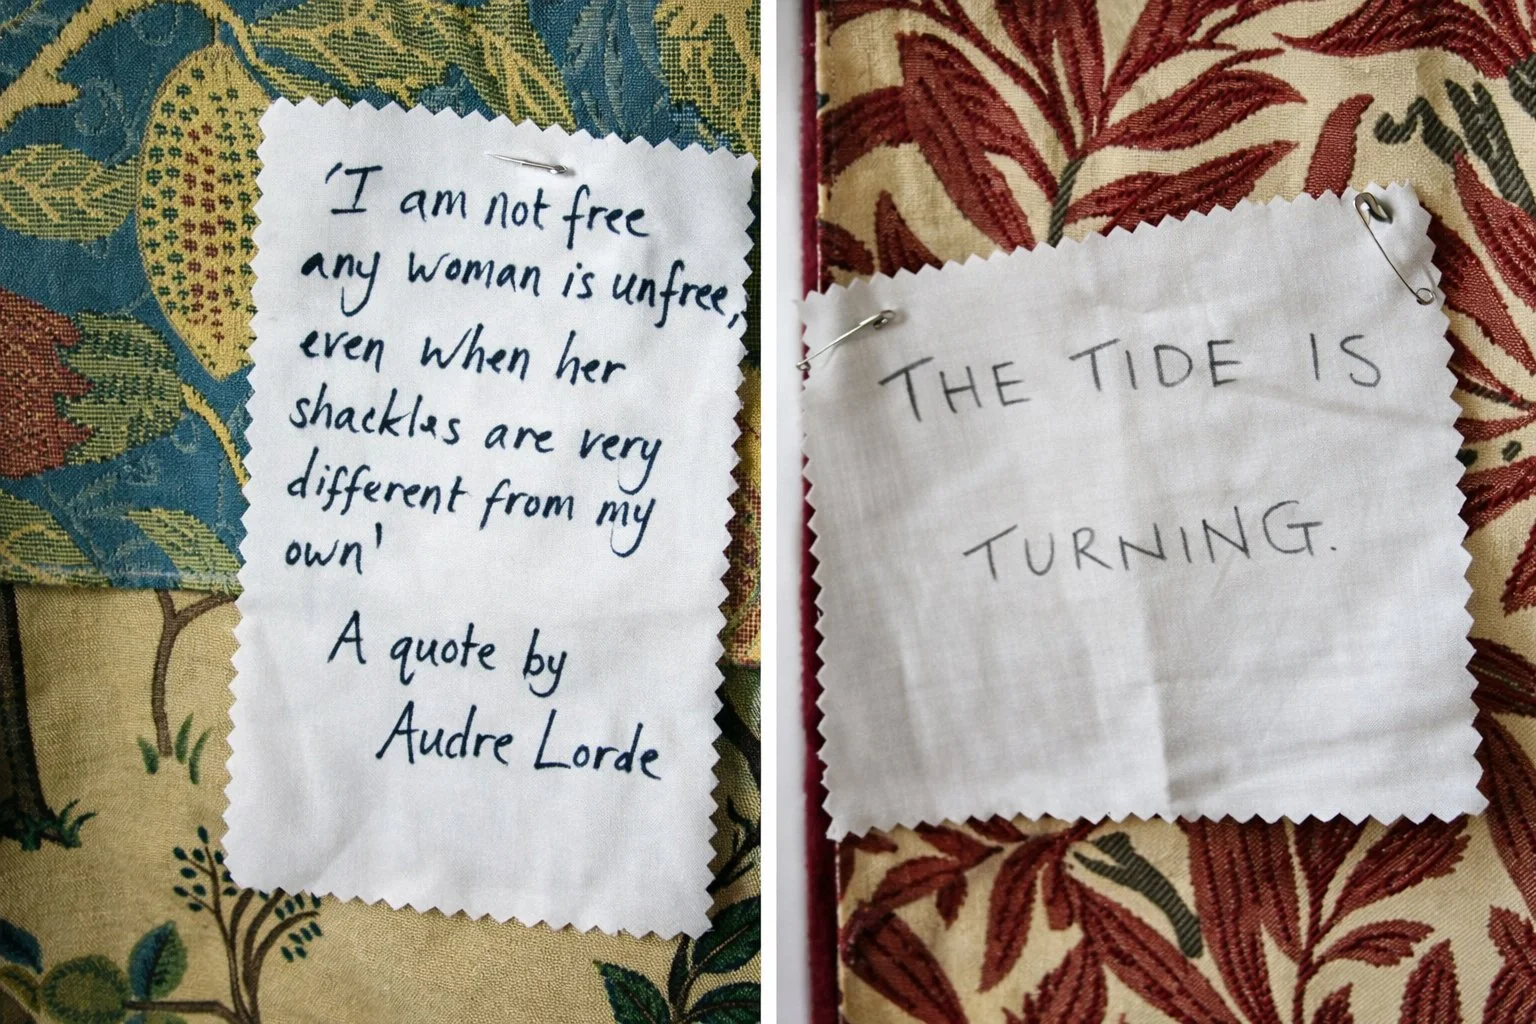 'I am not free
any woman is unfree,
even when her
shackles are very
different from my
own'
A quote by
Audre Lorde
THE TIDE IS
TURNING.